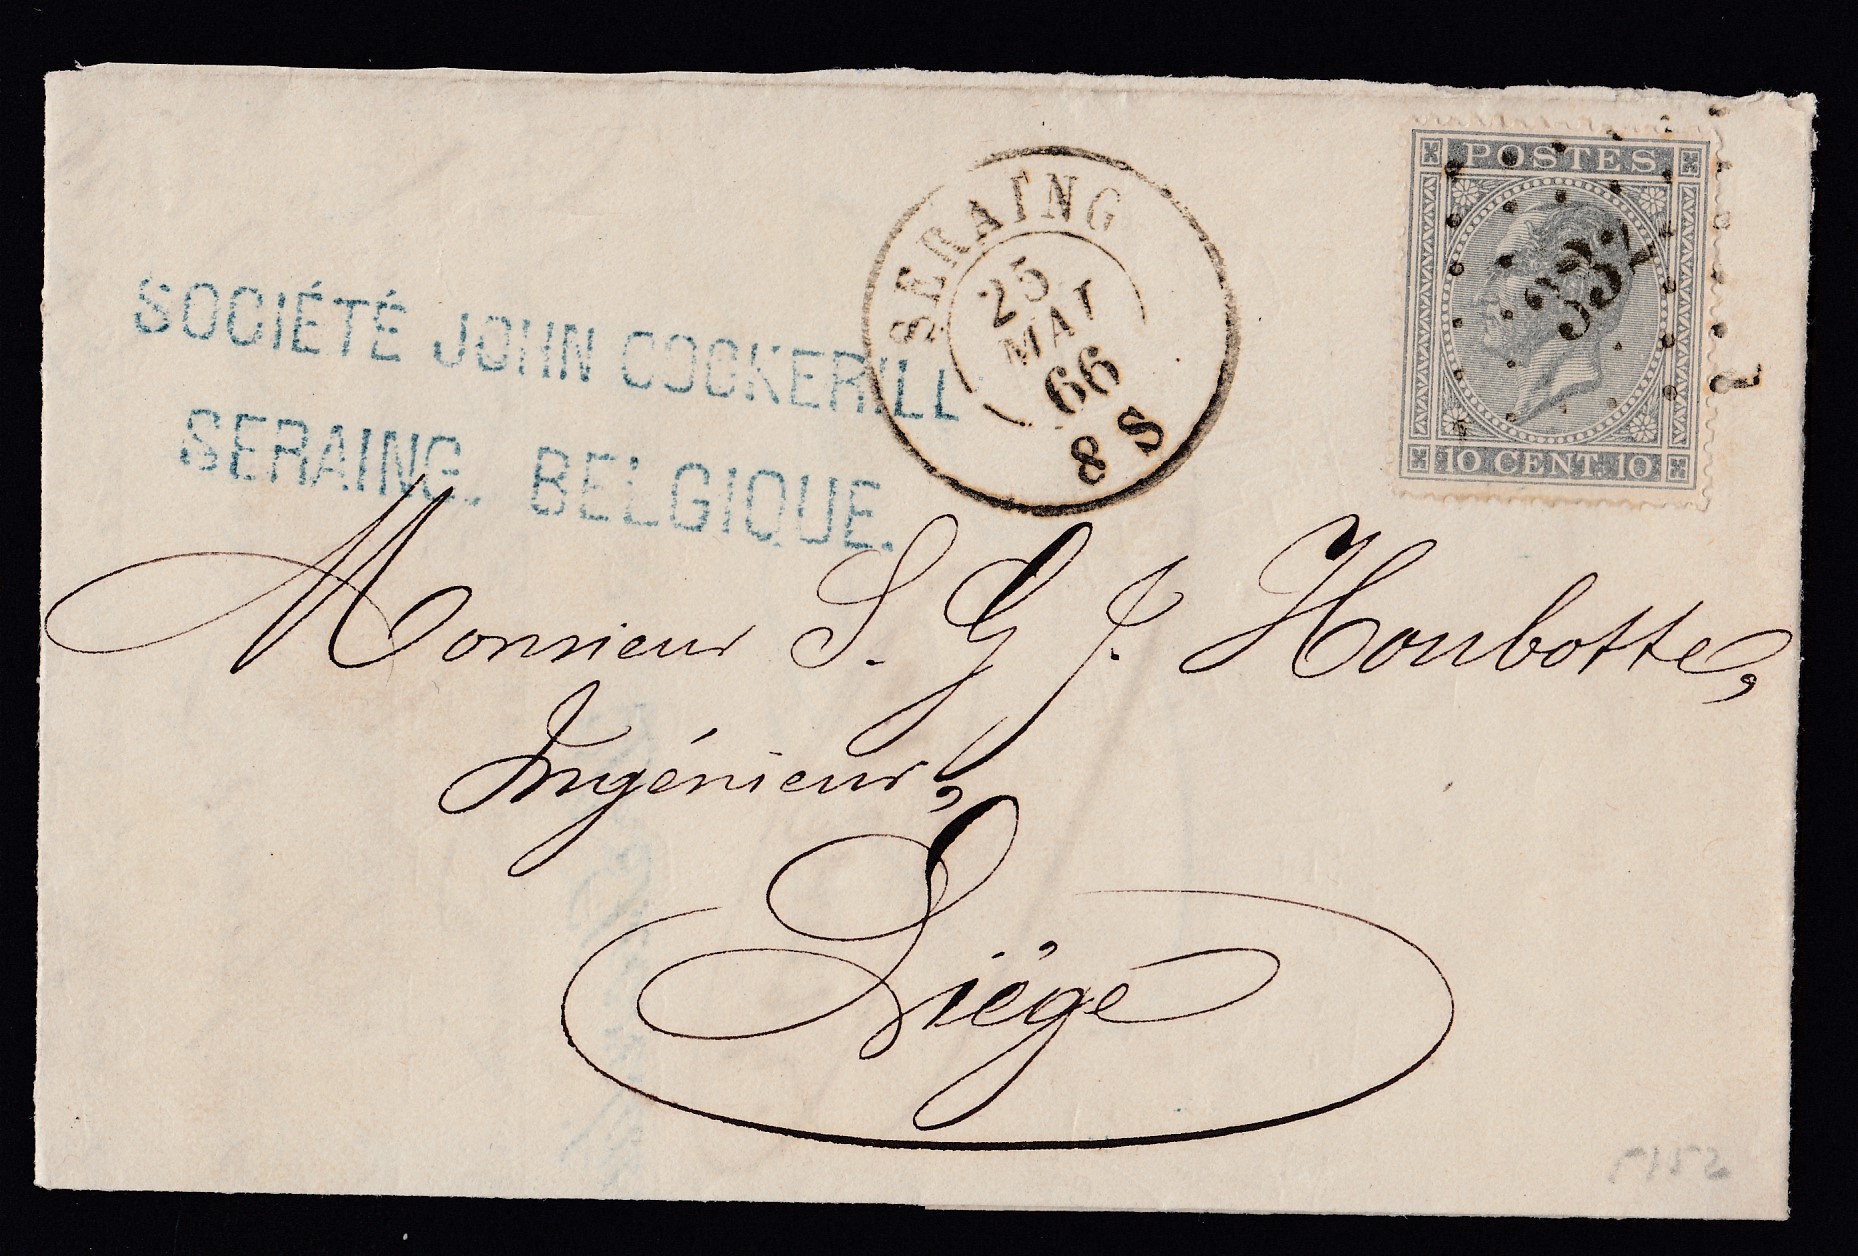 SOCIÉTÉ JOHN COCKERILL
SERAING. BELGIQUE.
SERAING
25
MAI
66
8 S
POSTES
10 CENT. 10
Monsieur S. G. J. Houbotte,
Ingénieur,
Liége